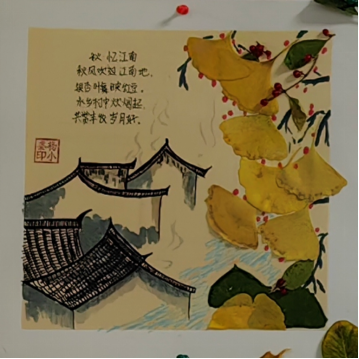 秋 忆江南
秋风吹过江南地,
银杏叶映红豆.
水乡村中炊烟起.
共赏丰收岁月好.